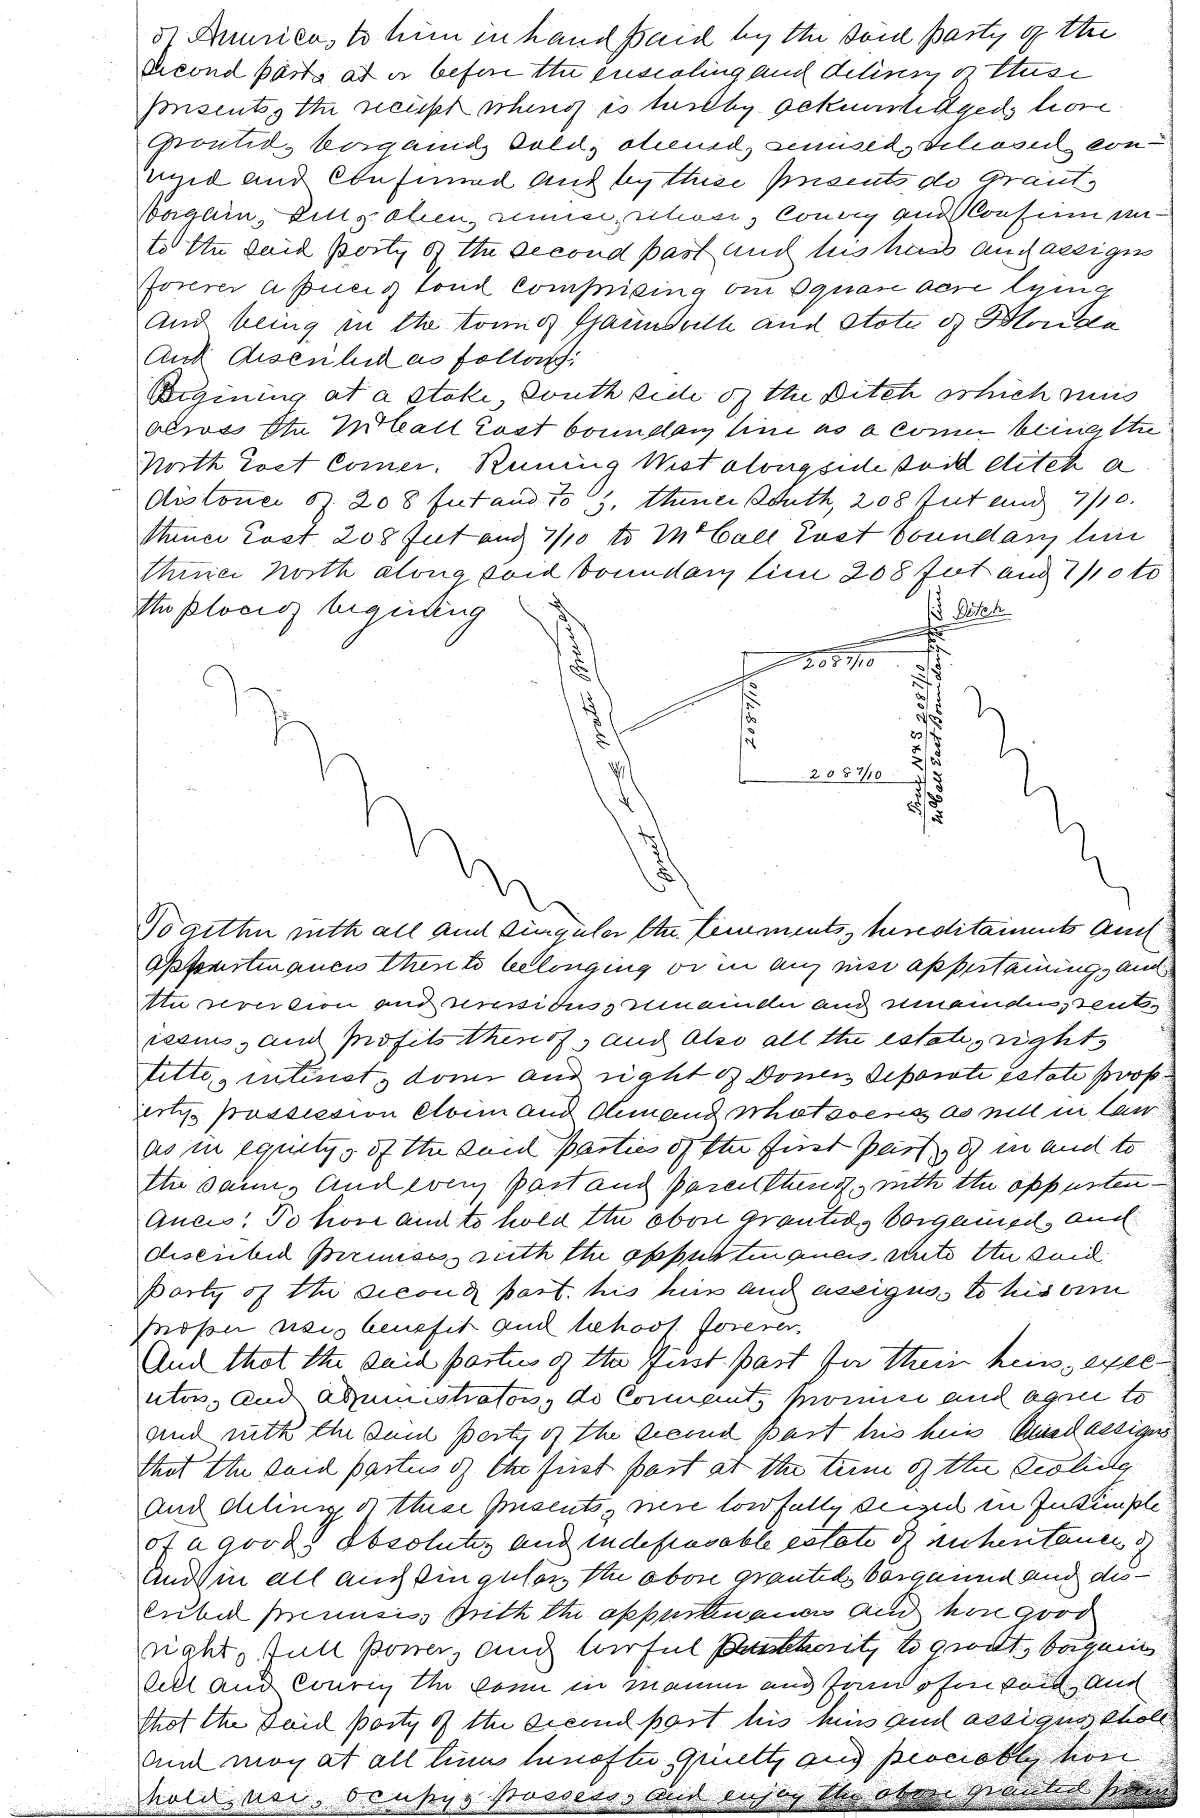 of America, to him in hand paid by the said party of the
second part, at or before the ensealing and delivery of these
presents, the receipt whereof is hereby acknowledged, have
granted, bargained, sold, aliened, remised, released, con-
veyed and confirmed and by these presents do grant,
bargain, sell, alien, remise, release, convey and confirm un-
to the said party of the second part and his heirs and assigns
forever a piece of land comprising one square acre lying
and being in the town of Gainesville and state of Florida
and described as follows:
Begining at a stake, south side of the Ditch which runs
across the McCall East boundary line as a corner being the
North East Corner. Runing West alongside said ditch a
distance of 208 feet and 7/10, thence South, 208 feet and 7/10.
thence East 208 feet and 7/10 to McCall East boundary line
thence North along said boundary line 208 feet and 7/10 to
the place of begining
Line Ditch
208 7/10
208 7/10
208 7/10
True N & S 208 7/10
McCall East Boundary
Water
Together with all and singular the tenements, hereditaments and
appurtenances thereto belonging or in any wise appertaining, and
the reversion and reversions, remainder and remainders, rents,
issues, and profits thereof, and also all the estate, right,
title, interest, dower and right of Dower, separate estate prop-
erty, possession claim and demand whatsoever, as well in law
as in equity, of the said parties of the first part, of in and to
the same, and every part and parcel thereof, with the appurten-
ances: To have and to hold the above granted, bargained, and
described premises, with the appurtenances, unto the said
party of the second part, his heirs and assigns, to his own
proper use, benefit and behoof forever.
And that the said parties of the first part for their heirs, exec-
utors, and administrators, do covenant, promise and agree to
and with the said party of the second part his heirs and assigns
that the said parties of the first part at the time of the sealing
and delivery of these presents, were lawfully seized in fee simple
of a good, absolute, and indefeasable estate of inheritance, of
and in all and singular, the above granted, bargained and des-
cribed premises, with the appurtenances and have good
right, full power, and lawful authority to grant, bargain,
sell and convey the same in manner and form aforesaid, and
that the said party of the second part his heirs and assigns, shall
and may at all times hereafter, quietly and peaceably have
hold, use, occupy, possess, and enjoy the above granted prem